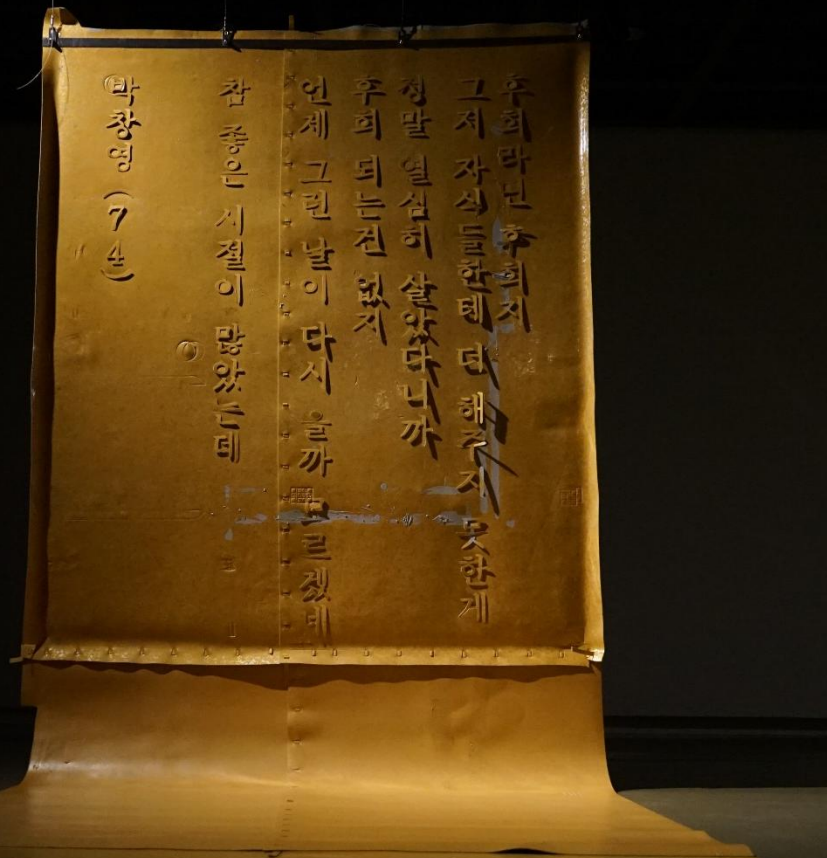 후회라면 후회지
그저 자식들한테 더 해주지 못한게
정말 열심히 살았다니까
후회 되는건 없지
언제 그런 날이 다시 올까 모르겠네
참 좋은 시절이 많았는데
박창영 (74)